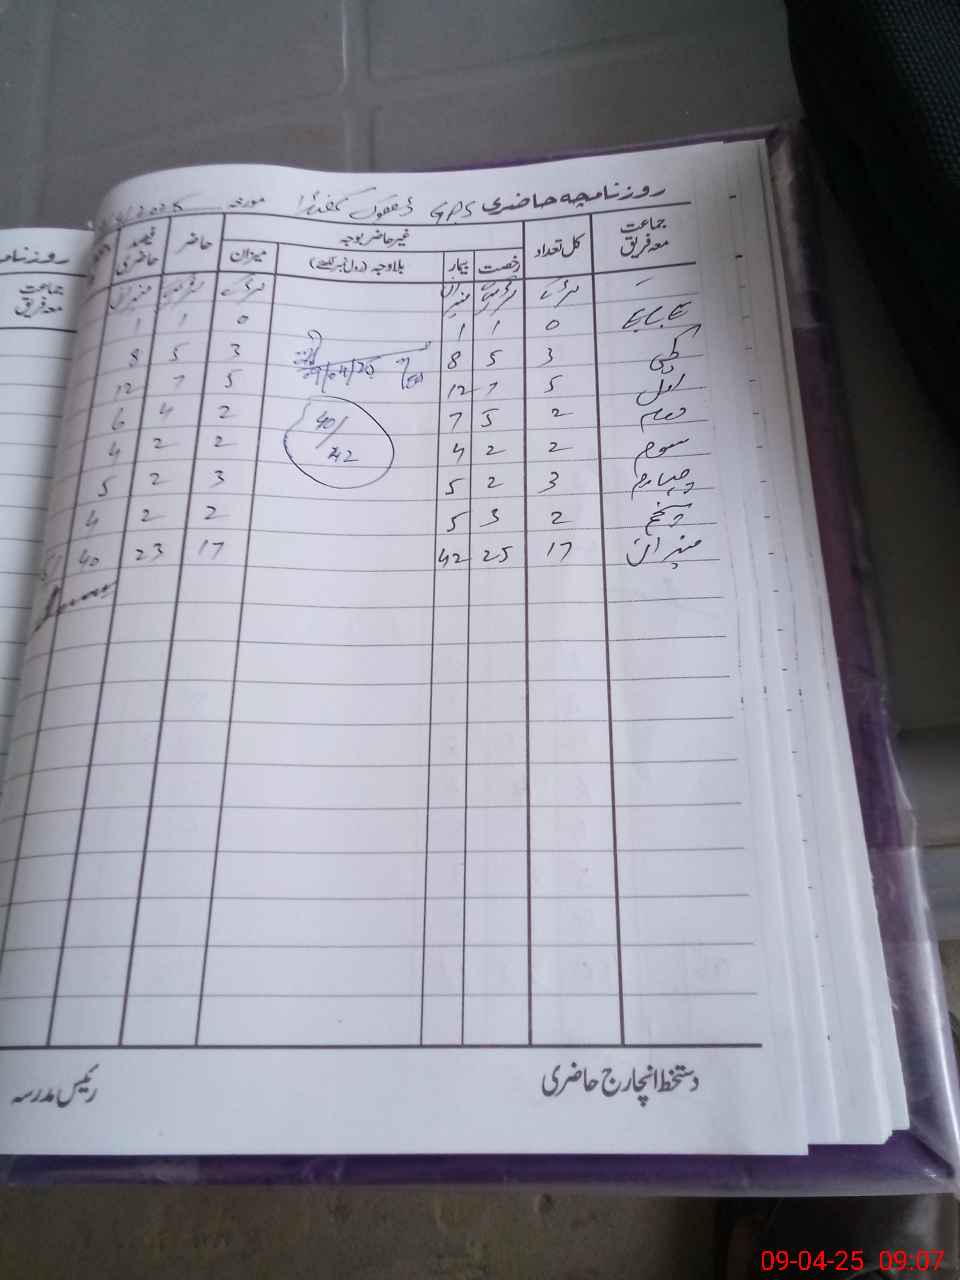 روزنامچہ حاضری GPS ڈھوک کھنڈا مورخہ
جماعت معہ فریق کل تعداد غیر حاضر بوجہ حاضر فیصد حاضری
رخصت بیمار بلاوجہ (رول نمبر لکھیے) میزان
0 1 1 0 1 1
کچی 3 5 8 3 5 8
اول 5 7 12 5 7 12
دوم 2 5 7 2 4 6
سوم 2 2 4 2 2 4
چہارم 3 2 5 3 2 5
پنجم 2 3 5 2 2 4
میزان 17 25 42 17 23 40
40/42
دستخط انچارج حاضری
رئیس مدرسہ
جماعت معہ فریق
09-04-25 09:07